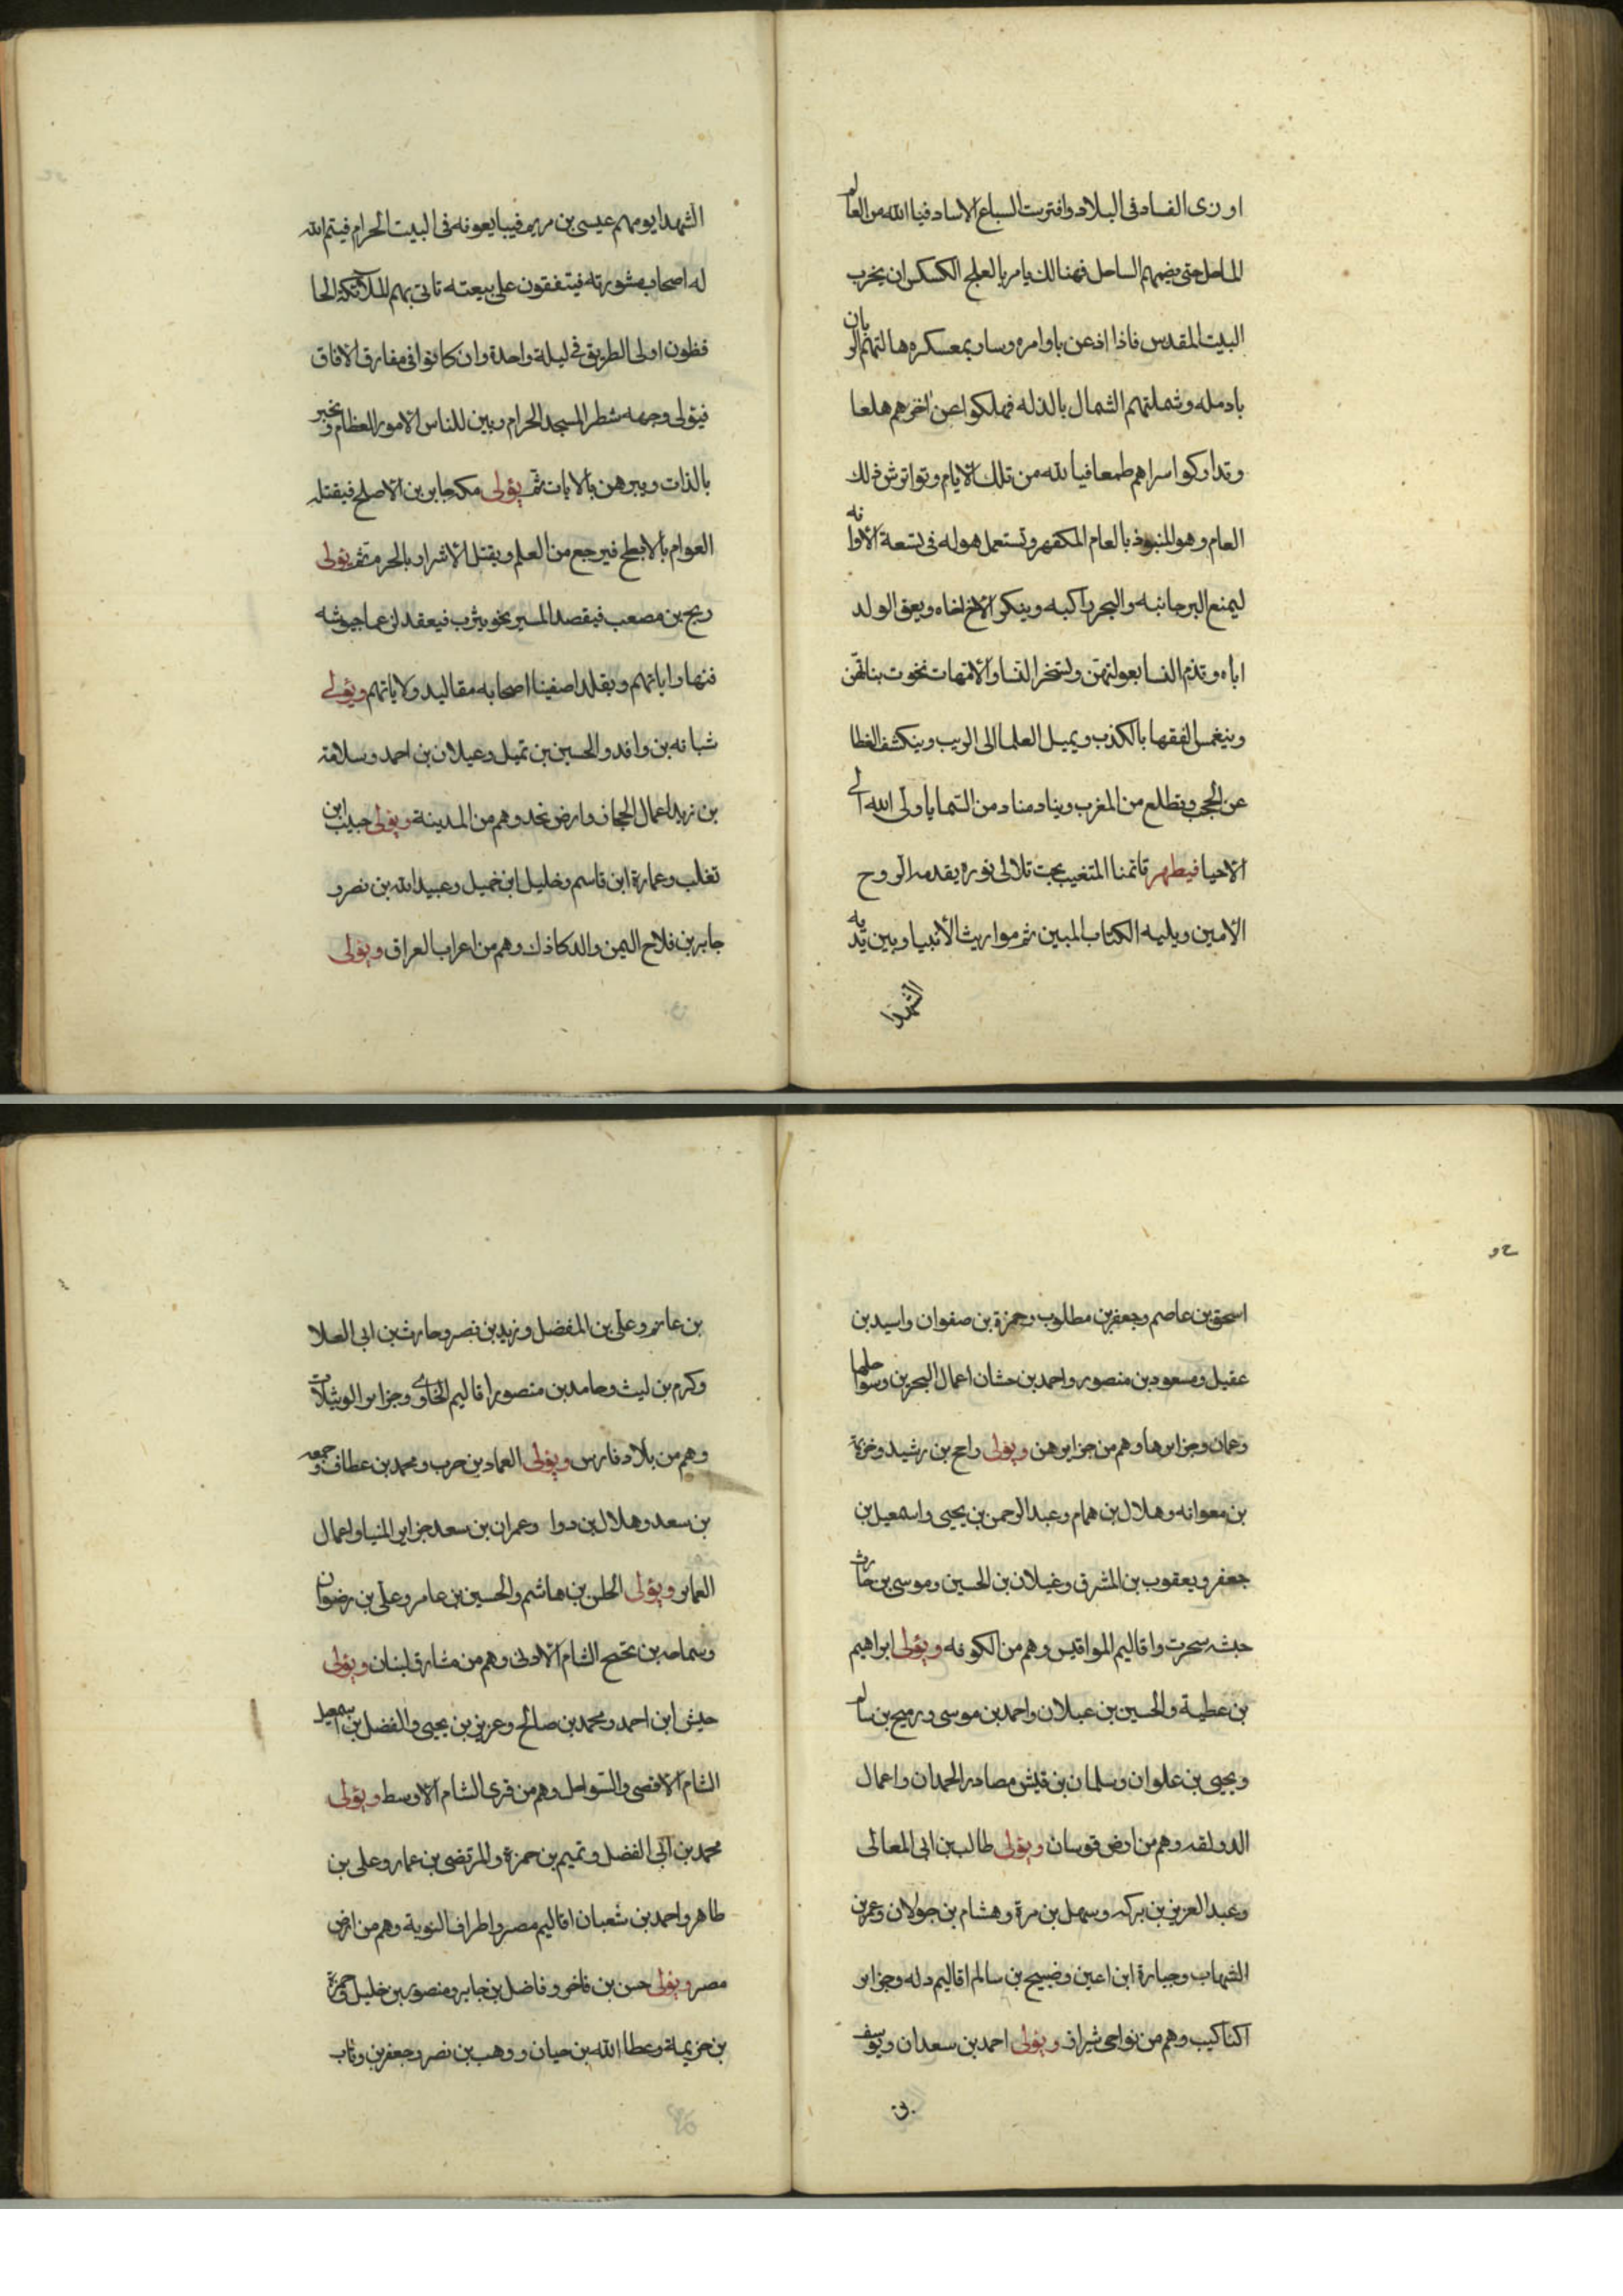 او زى الفساد فى البلاد وافترست السباع الاساد فيا لله من العام
الماحل حتى يضمهم الساحل فهنالك يامر بالعلج الكسكس ان يخرب
البيت المقدس فاذا اذعن باوامره وسار بمعسكره هالتهم الوبان
بادمله وشملتهم الشمال بالذله فهلكوا عن اخرهم هلعا
وتداركوا اسراهم طمعا فيا لله من تلك الايام وتواتر شر ذلك
العام وهو المنبوذ بالعام المكفهر وتستعمل هوله فى تسعة الاوانه
ليمنع البر جانبه والبحر راكبه وينكر الاخ اخاه ويعق الولد
اباه وتذم النسا بعولتهن ولتسخر النسا والامهات نخوت بناتهن
وينغمس الفقها بالكذب ويميل العلما الى الريب وينكشف الغطا
عن الحجب وتطلع من المغرب ويناد مناد من السما يا ولى الله الى
الاحيا فيظهر قائمنا المتغيب بحت تلالى نوره يقدمه الروح
الامين وبليه الكتاب المبين ثم مواريث الانبيا وبين يديه
الشهدا
الشهدا يومهم عيسى بن مريم فيبايعونه فى البيت الحرام فيتم الله
له اصحاب مشورته فيتفقون على بيعته تاتى بهم الملائكة الحا
فظون اولى الطريق فى ليلة واحدة وان كانوا فى مفارق الافاق
فيتولى وجهه شطر المسجد الحرام ويبين للناس الامور العظام ويخبر
بالذات ويبرهن بالايات ثم يؤلى مكه جابر بن الاصلح فيقتله
العوام بالابطح فيرجع من العلم ويقتل الاشرار بالحرم ثم يؤلى
ريح بن مصعب فيقصد المسير نحو يثرب فيعقد لزعما جيوشه
فنها راياتهم ويقلد اصفينا اصحابه مقاليد ولاياتهم ويؤلى
شبانه بن وافد والحسين بن ثميل وعيلان بن احمد وسلامة
بن زيد اعمال الحجاز وارض نجد وهم من المدينة ويؤلى حبيب ابن
تغلب وعمارة ابن قاسم وخليل ابن خميل وعبيد الله بن نصر و
جابر بن فلاح اليمن والدكاذك وهم من اعراب العراق ويؤلى
اسحق بن عاصم وجعفر بن مطلوب وحمزة بن صفوان واسيد بن
عقيل ومسعود بن منصور واحمد بن حشان اعمال البحرين وسواحلها
وعمان وجزايرها وهم من جزاير هن ويؤلى راحج بن رشيد وخزيمة
بن معوانه وهلال بن همام وعبد الرحمن بن يحيى واسمعيل بن
جعفر ويعقوب بن المشرق وغيلان بن الحسين وموسى بن حارث
حبشه سحرت واقاليم المواقيس وهم من الكوفه ويؤلى ابراهيم
بن عطية والحسين بن عبلان واحمد بن موسى ورميح بن سالم
ويحيى بن علوان وسلمان بن قليش مصادر الحمدان واعمال
الدولقه وهم من ارض قوسان ويؤلى طالب بن ابى المعالى
وعبد العزيز بن بركه وسهل بن مرة وهشام بن جولان وعمر بن
الشهاب وجبارة ابن اعين وضبيح بن سالم اقاليم دله وجزاير
اكتاكيب وهم من نواحى شيراز ويؤلى احمد بن سعدان ويوسف
بن
بن عانم وعلى بن المفضل وزيد بن نصر وحارث بن ابى العلا
وكرم بن ليث وحامد بن منصور اقاليم الخاوى وجزاير الوثيلات
وهم من بلاد فارس ويؤلى العماد بن حرب ومحمد بن عطاف وجمعه
بن سعد وهلال بن دوا وعمران بن سعد جزاير المنيا واعمال
العماير ويؤلى الحلن بن هاشم والحسين بن عامر وعلى بن رضوان
وسماحه بن تحصح الشام الادنى وهم من مشارق لبنان ويؤلى
حبش ابن احمد ومحمد بن صالح وعزيز بن يحيى والفضل بن اسمعيل
الشام الاقصى والسواحل وهم من قرى الشام الاوسط ويؤلى
محمد بن ابى الفضل وتميم بن حمزة والمرتضى بن عمار وعلى بن
طاهر واحمد بن شعبان اقاليم مصر واطراف النوبة وهم من ارض
مصر ويؤلى حسن بن فاخر وفاضل بن جابر ومنصور بن خليل وحمزة
بن خزيمة وعطا الله بن حيان ووهب بن نصر وجعفر بن وثاب